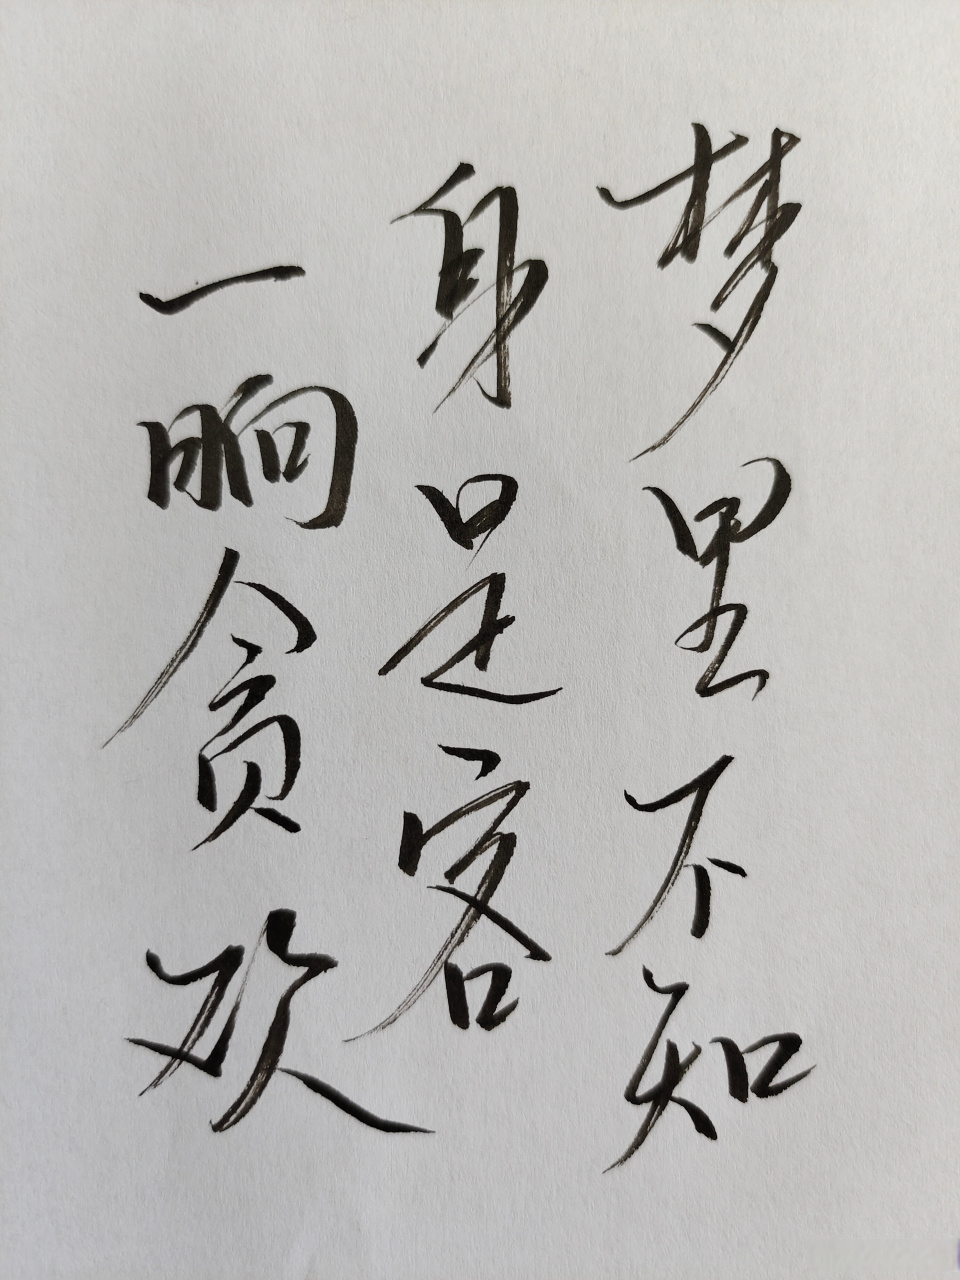 梦里不知
身是客
一晌贪欢